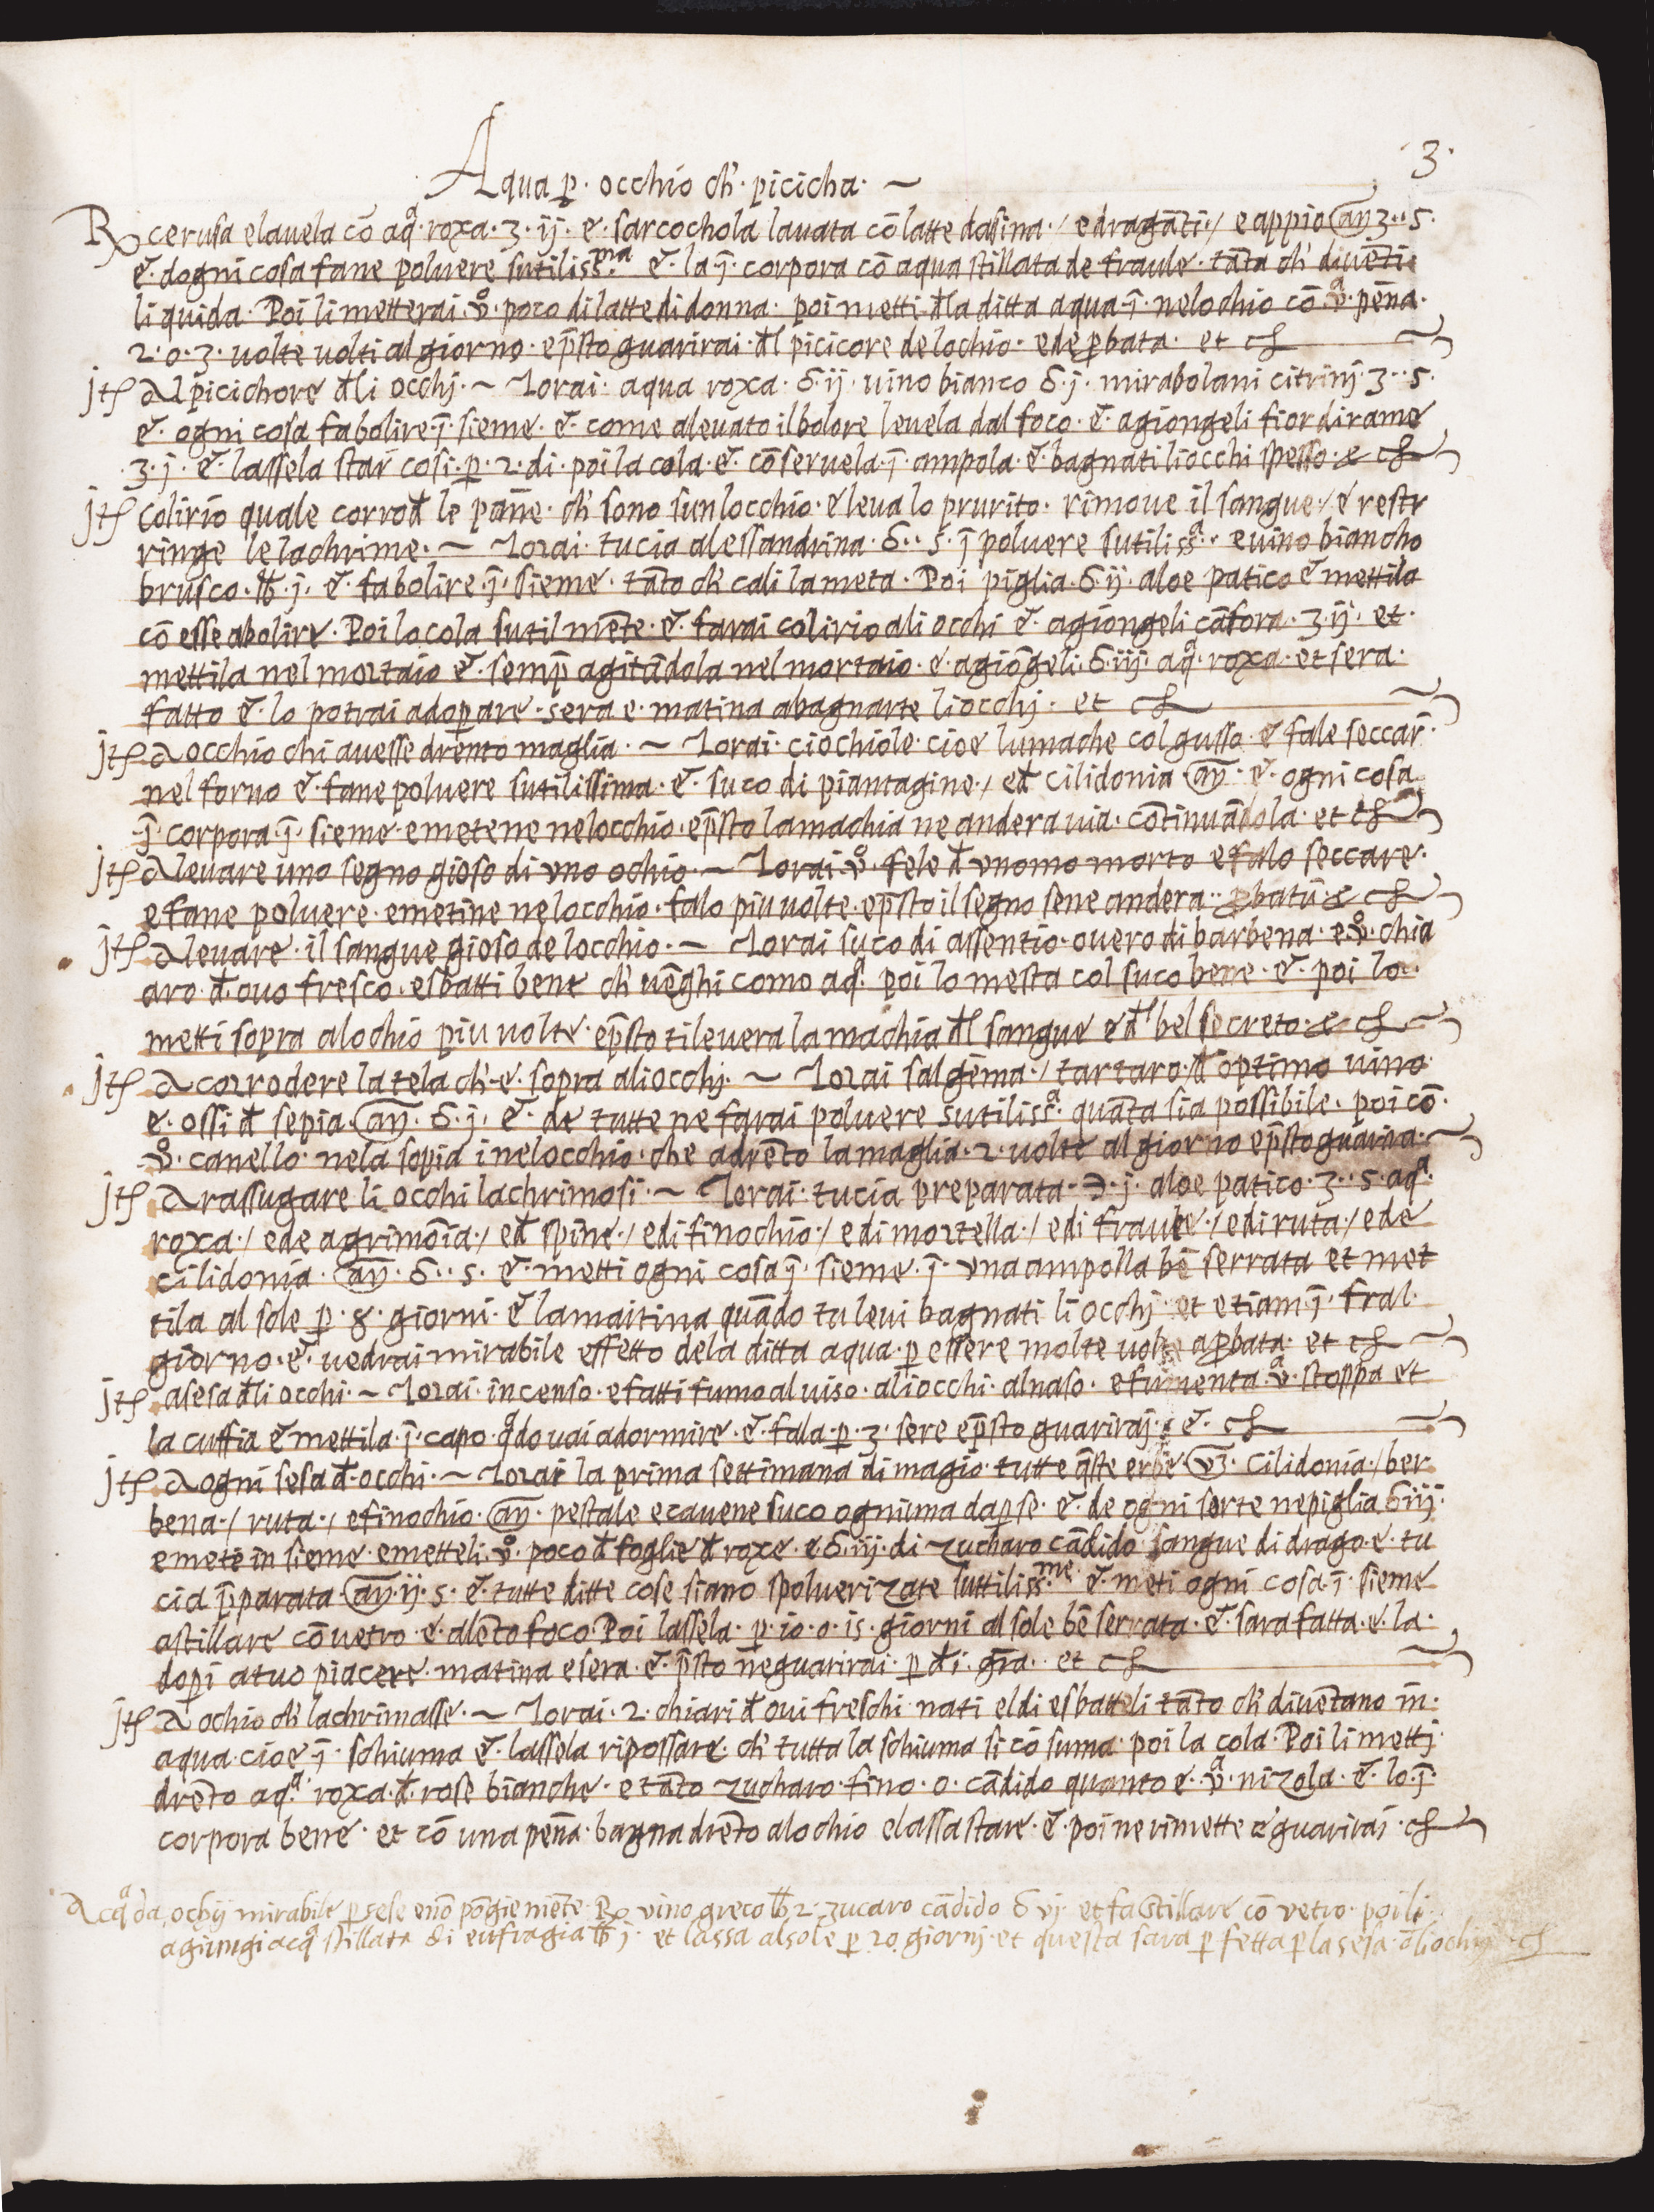 3.
Aqua p̱. occhio ch̓. picicha. ~
℞ cerusa elauela cō aq̄ᵃ. roxa. ʒ. ij. e. sarcochola lauata cō latte dasina. / edragāti. / e appio añ ʒ.. s.
e. dogni cosa fane poluere sutilissᵐᵃ. e. la j̄. corpora cō aqua stillata de fraule. tāta ch̓ diuēti
liquida. Poi li metterai. v̊. poco di latte di donna. poi metti đla ditta aqua j̄. nelochio cō. vᵃ. pēna.
2. o. 3. uolte uolti al giorno. ep̄sto guarirai. đl picicore delochio. ede ꝓbata. et cƒ
jtƒ Al picichore đli occhj. ~ Torai. aqua roxa. ϭ. ij. uino bianco ϭ. j. mirabolani citrinj. ʒ.. s.
e. ogni cosa fabolire. j̄. sieme. e. come aleuato il bolore leuela dal foco. e. agiongeli fior di rame
.ʒ. j. e. lassela star̄ cosi. p̱. 2. di. poi la cola. e. cōseruela. j̄. ampola. e. bagnati liocchi spesso. e cƒ
jtƒ Colirio quale corrođ le pāne. ch̓ sono sun locchio. e leua lo prurito. rimoue il sangue. / e restr
ringe le lachrime. ~ Torai. tucia alessandrina. ϭ.. s. j̄ poluere sutilissᵃ.. e uino biancho
brusco. ℔. j. e. fabolire. j̄. sieme. tāto ch̓ cali la meta. Poi piglia. ϭ. ij. aloe patico e mettilo
cō esse abolire. Poi la cola sutilmēte. e. farai colirio ali occhi e. agiongeli cāfora. ʒ. ij. et.
mettila nel mortaio e. semp̄ agitādola nel mortaio. e. agiōgeli. ϭ. iij. aq̄ᵃ. roxa. et sera.
fatto e. lo potrai adop̱are. sera e. matina abagnarte liocchj. et cƒ
jtƒ A occhio chi auesse drento maglia. ~ Torai. ciochiole. cioe lumache col gusso. e fale seccar̄.
nel forno e. fane poluere sutilissima. e. suco di piantagine. / eđ cilidonia añ. e. ogni cosa
j̄. corpora. j̄. sieme. emetene nelocchio. ep̄sto lamachia ne andera uia. cōtinuādola. et cƒ
jtƒ A leuare uno segno gioso di vno ochio. ~ Torai. v̊. fele đ vnomo morto e falo seccare.
e fane poluere. emetine nelocchio. falo piu uolte. ep̄sto il segno sene andera.. ꝓbatū e cƒ
jtƒ A leuare. il sangue gioso delocchio. ~ Torai suco di assentio. ouero di barbena. e. v̊. chia
aro. đ. ouo fresco. esbatti bene ch̓ uēghi como aqᵃ. poi lo mesta col suco bene. e. poi lo.
metti sopra alochio piu uolte. ep̄sto ti leuera la machia đl sangue eđl bel secreto. e cƒ
jtƒ A corrodere la tela ch̓. e. sopra aliocchj. ~ Torai salgēma. / tartaro. đ optimo uino
e. ossi đ sepia. añ. ϭ. j. e. de tutte ne farai poluere sutilissᵃ. quāta sia possibile. poi cō.
v̊. canello. nela sopia inelocchio. che adrēto la maglia. 2. uolte al giorno ep̄sto guarira. ~
jtƒ A rassugare li occhi lachrimosi. ~ Torai. tucia preparata. ℈. j. aloe patico. ʒ.. s. aqᵃ.
roxa. / ede agrimōia. / eđ spine. / edi finochio. / edi mortella. / edi fraule. / edi ruta. / ede
cilidonia. añ. ϭ.. s. e. metti ogni cosa j̄. sieme. j̄. vna ampolla bē serrata et met
tila al sole p̱. 8. giorni. e la maitina quādo tu leui bagnati li occhj. et etiam. j̄. fral.
giorno. e. uedrai mirabile effetto dela ditta aqua. p̱ essere molte uolte aꝓbata. et cƒ
jtƒ asesa đli occhi. ~ Torai. incenso. e fatti fumo al uiso. aliocchi. alnaso. e fumenta. vᵃ. stoppa et
la cuffia e mettila. j̄. capo. qᵃdo uai adormire. e. fala. p̱. 3. sere ep̄sto guariraj. e. cƒ
jtƒ A ogni sesa đ. occhi. ~ Torai la prima settimana di magio. tutte q̄ste erbe. vʒ. cilidonia. / ber
bena. / ruta. / efinochio. añ. pestale ecauene suco ogniuna dap̱se. e. de ogni sorte nepiglia. ϭ iij.
emetē in sieme. emetteli. v̊. poco đ foglie đ roxe. e. ϭ. iij. di zucharo cādido sangue di drago. e. tu
cia p̄parata añ. ij. s. e. tutte ditte cose siano spoluerizate suttilissᵐᵉ. e. meti ogni cosa. j̄. sieme
astillare cō uetro. e. alēto foco. Poi lassela. p̱. io. o. is. giorni al sole bē serrata. e. sara fatta. e. la.
dop̱i atuo piacere. matina e sera. e. p̄sto ne guarirai. p̱ đi. grā.. et cƒ
jtƒ A ochio ch̓ lachrimasse. ~ Torai. 2. chiari đ oui freschi nati eldi esbatteli tāto ch̓ diuētano in.
aqua. cioe j̄. schiuma e. lassela ripossare. ch̓ tutta la schiuma si cōsuma. poi la cola. Poi li mettj.
drēto aqᵃ. roxa. đ. rose bianche. e tāto zucharo. fino. o. cādido quanto e.. vᵃ. nizola. e. lo. j̄.
corpora bene. et cō una pēna. bagna drēto alochio e lassa stare. e. poi ne rimette e guarirai. cƒ
Acqᵃ da, ochij mirabile p̱ sese enō pōgie niēte. ℞ vino greco ℔ 2. zucaro cādido ϭ vj. et fa stillare cō vetro. poi li.
agiungi acqᵃ stillata di eufragia ℔ j. et lassa al sole p̱ 20. giornj. et questa sara p̱fetta p̱ la sesa. đli ochij. cƒ